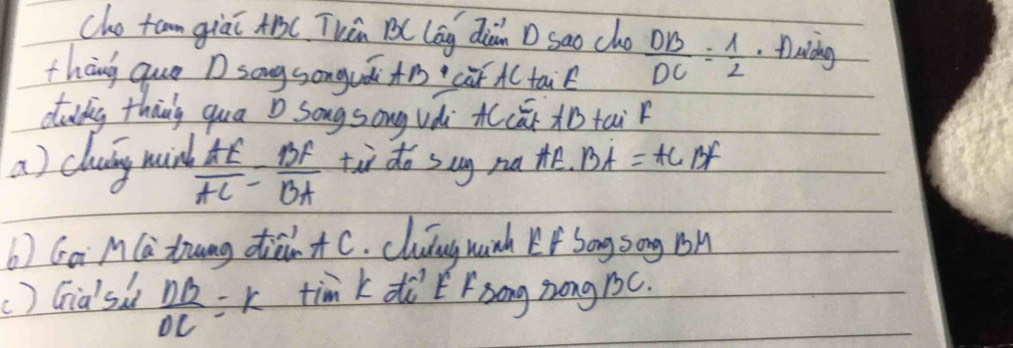 Cho tam giác ABC. Trên BC lấy điểm D sao cho DB/DC = 1/2. Đường
thẳng qua D song song với AB cắt AC tại E
đường thẳng qua D song song với AC cắt AB tại F
a) chứng minh AE/AC = BF/BA từ đó suy ra AE. BA = AC BF
b) Gọi M là trung điểm AC. Chứng minh EF song song BM
c) Giả sử DB/DC = k tìm k để EF song song BC.